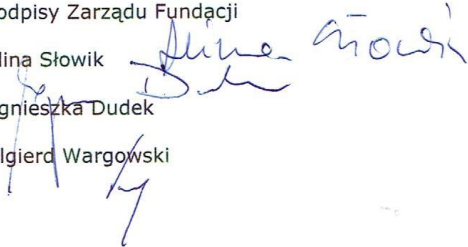 odpisy Zarządu Fundacji
lina Słowik Alina Słowik
gnieszka Dudek
lgierd Wargowski